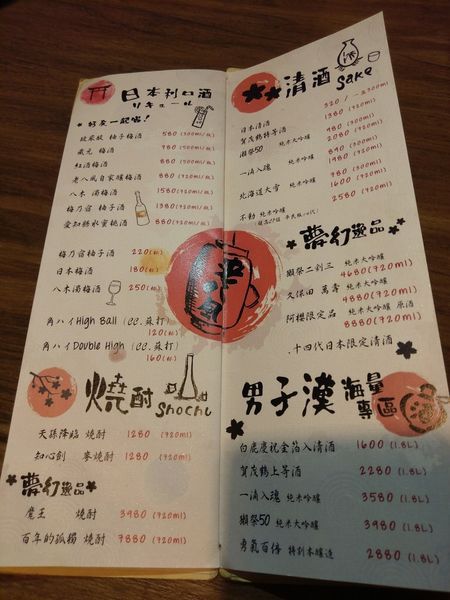 日本利口酒
リキュール
好友一起喝!
紋家故 柚子梅酒 580 (500ml/瓶)
蔵元 梅酒 980 (500ml/瓶)
紅酒梅酒 880 (500ml/瓶)
老八風自家釀梅酒 880 (500ml/瓶)
八木 濁梅酒 1580 (720ml/瓶)
梅乃宿 柚子酒 1380 (720ml/瓶)
愛知熟水蜜桃酒 880 (720ml/瓶)
梅乃宿柚子酒 220 (杯)
日本梅酒 180 (杯)
八木濁梅酒 250 (杯)
角ハイHigh Ball (cc.蘇打)
120 (杯)
角ハイDouble High (cc.蘇打)
160 (杯)
燒酎
Shochu
天孫降臨 燒酎 1280 (720ml)
知心劍 麥燒酎 1280 (720ml)
夢幻逸品
魔王 燒酎 3980 (720ml)
百年的孤獨 燒酎 7880 (720ml)
清酒
Sake
日本清酒 320 / 一壺300ml
賀茂鶴上等酒 1380 (720ml)
獺祭50 純米大吟釀 890 (300ml)
2080 (720ml)
一滴入魂 純米吟釀 890 (300ml)
1980 (720ml)
北海道大雪 純米吟釀 980 (300ml)
1600 (720ml)
不動 純米大吟釀 2580 (720ml)
夢幻逸品
獺祭二割三 純米大吟釀
4680 (720ml)
久保田 萬壽 純米大吟釀
4880 (720ml)
阿櫻限定品 純米大吟釀 原酒
8880 (720ml)
.十四代日本限定清酒
男子漢 海量專區
白鹿慶祝金箔入清酒 1600 (1.8L)
賀茂鶴上等酒 2280 (1.8L)
一滴入魂 純米吟釀 3580 (1.8L)
獺祭50 純米大吟釀 3980 (1.8L)
勇氣百倍 特別本釀造 2880 (1.8L)